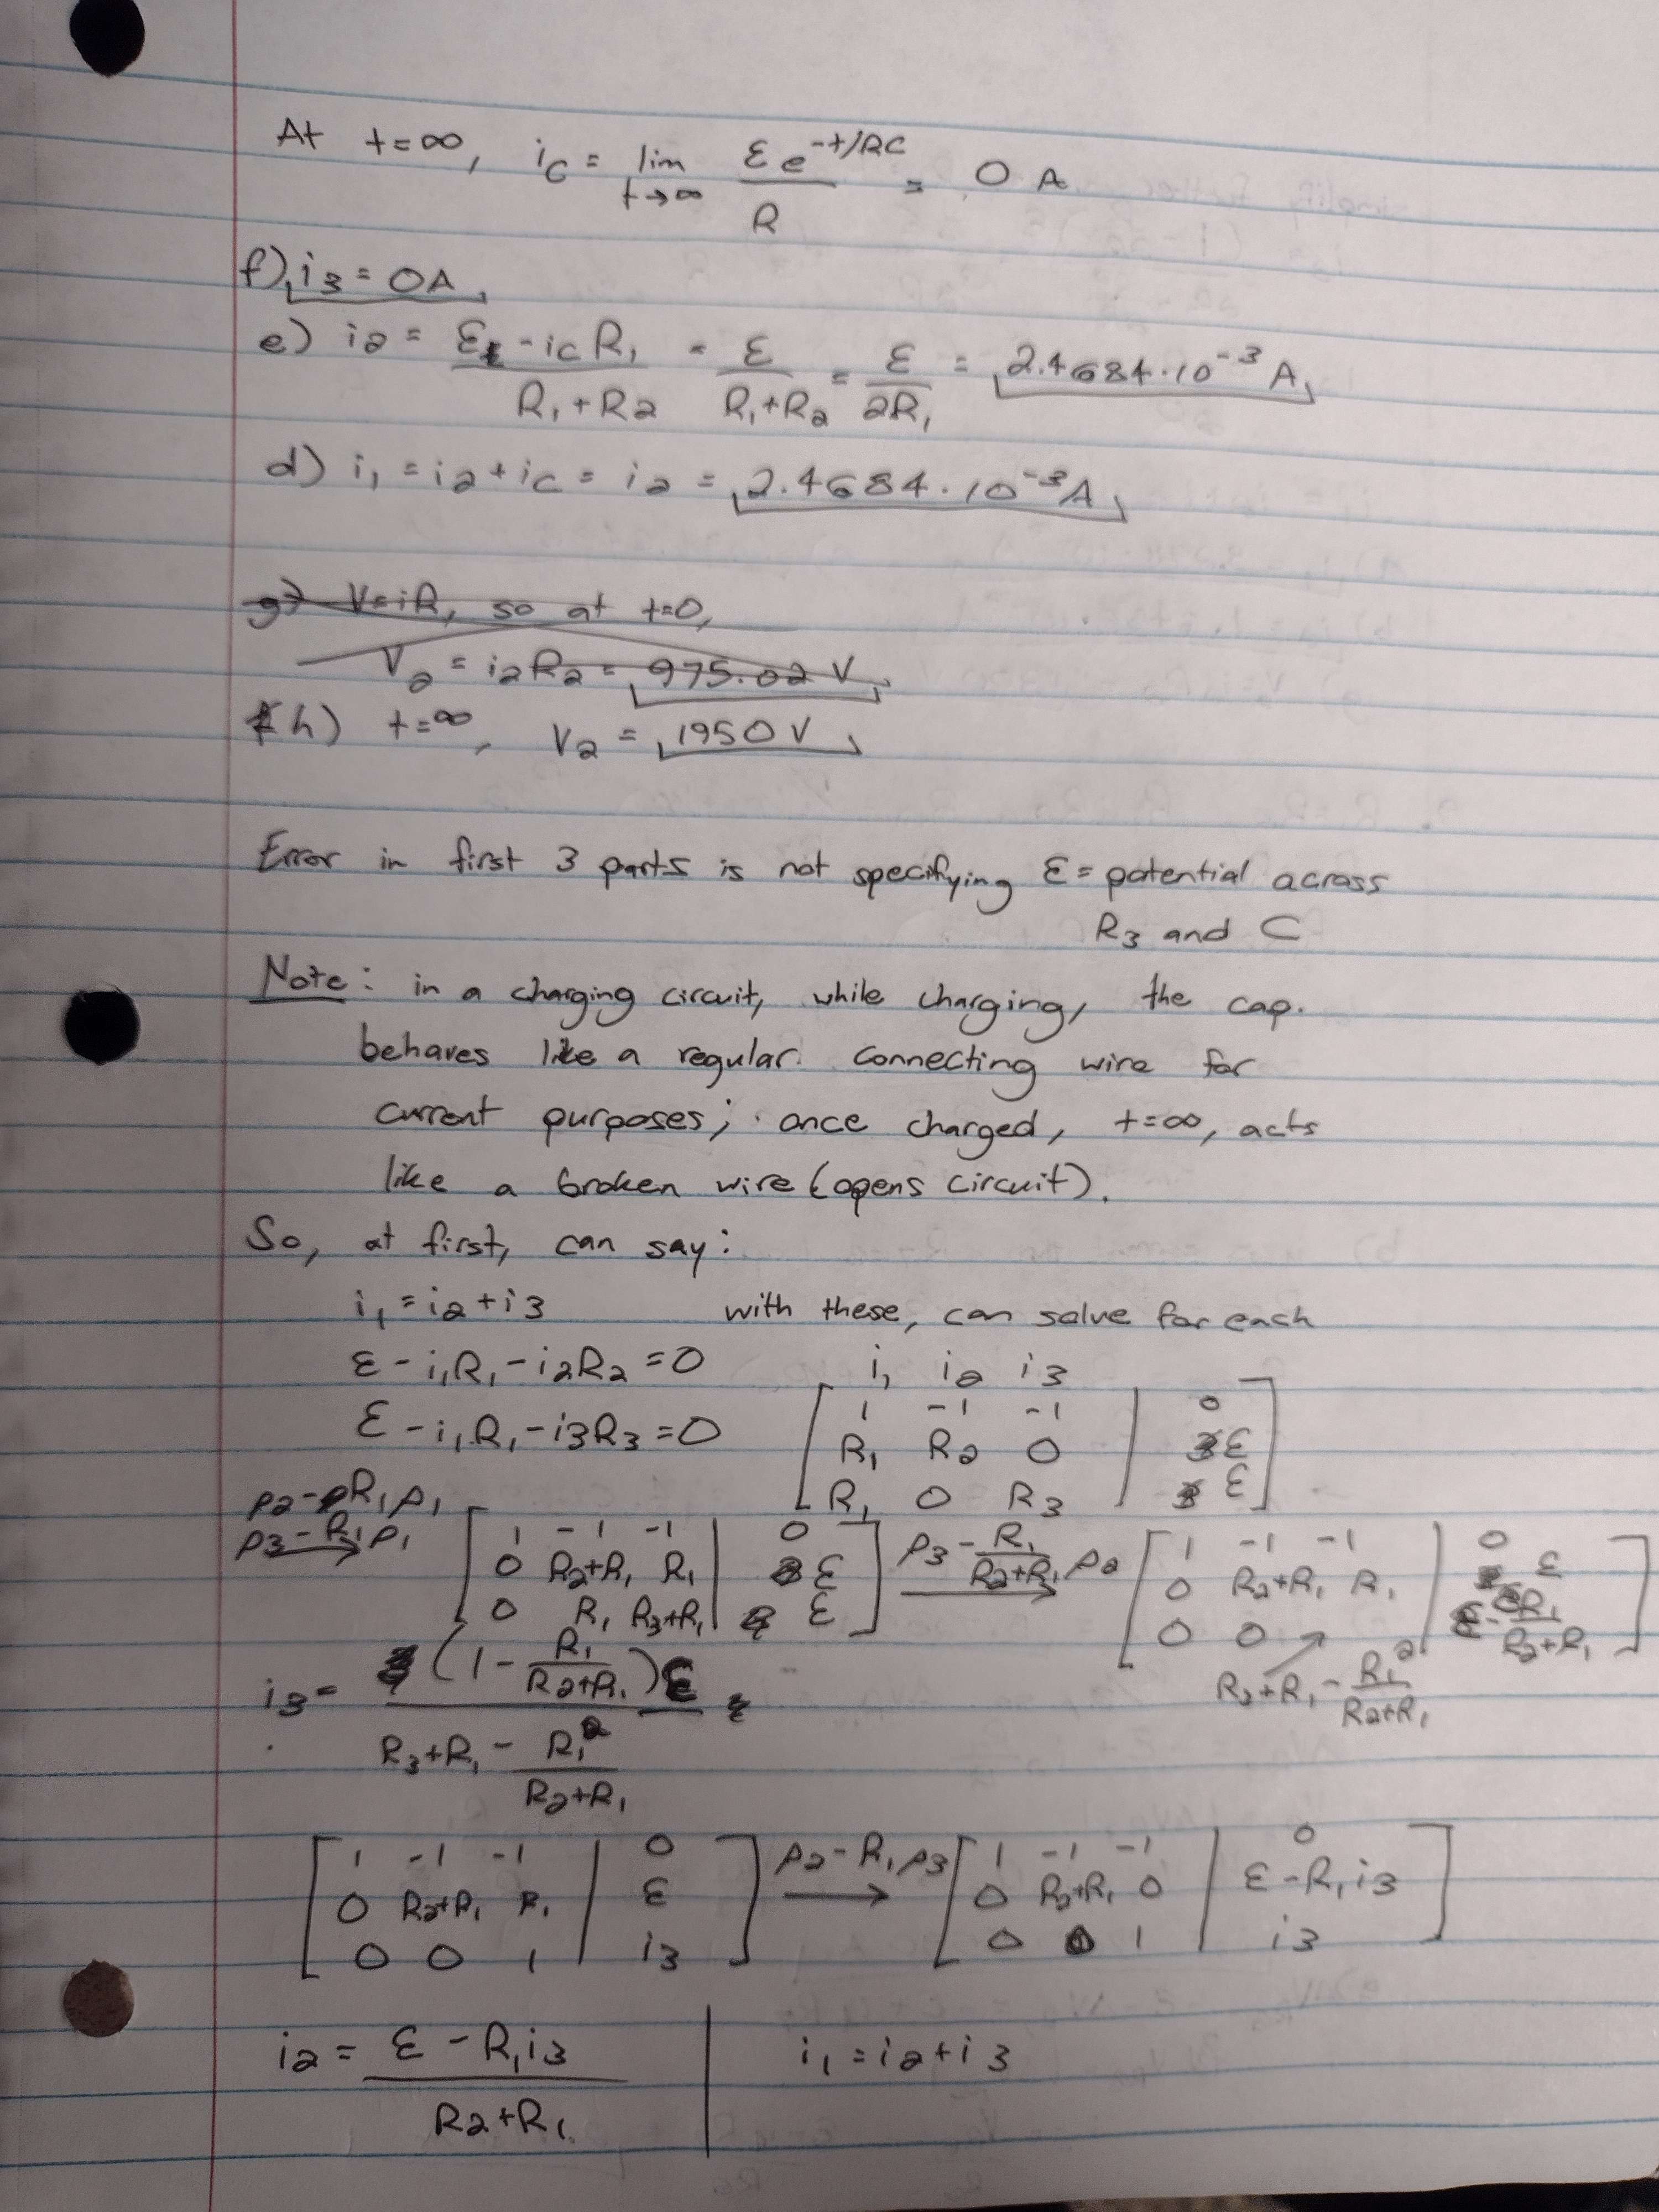 At t=∞, i_C = lim_{t→∞} εe^{-t/RC} / R = 0 A
f) i₃ = 0A
e) i₂ = (ε - i_C R₁)/(R₁+R₂) = ε/(R₁+R₂) = ε/(2R₁) = 2.4684·10⁻³ A
d) i₁ = i₂ + i_C = i₂ = 2.4684·10⁻³ A
g) V=iR, so at t=0,
V₂ = i₂R₂ = 975.02 V
h) t=∞, V₂ = 1950 V
Error in first 3 parts is not specifying ε = potential across
R₃ and C
Note: in a charging circuit, while charging, the cap.
behaves like a regular connecting wire for
current purposes; once charged, t=∞, acts
like a broken wire (opens circuit).
So, at first, can say:
i₁ = i₂+i₃ with these, can solve for each
ε - i₁R₁ - i₂R₂ = 0 i₁ i₂ i₃
ε - i₁R₁ - i₃R₃ = 0 [1 -1 -1 | 0
R₁ R₂ 0 | ε
R₁ 0 R₃ | ε]
ρ₂-R₁ρ₁
ρ₃-R₁ρ₁ → [1 -1 -1 | 0
0 R₂+R₁ R₁ | ε
0 R₁ R₃+R₁ | ε] ρ₃ - R₁/(R₂+R₁) ρ₂ → [1 -1 -1 | 0
0 R₂+R₁ R₁ | ε
0 0 ↗ | ε - εR₁/(R₂+R₁)]
R₃+R₁ - R₁²/(R₂+R₁)
i₃ = (1 - R₁/(R₂+R₁))ε / (R₃+R₁ - R₁²/(R₂+R₁))
[1 -1 -1 | 0
0 R₂+R₁ R₁ | ε
0 0 1 | i₃] ρ₂-R₁ρ₃ → [1 -1 -1 | 0
0 R₂+R₁ 0 | ε-R₁i₃
0 0 1 | i₃]
i₂ = (ε - R₁i₃)/(R₂+R₁) | i₁ = i₂+i₃